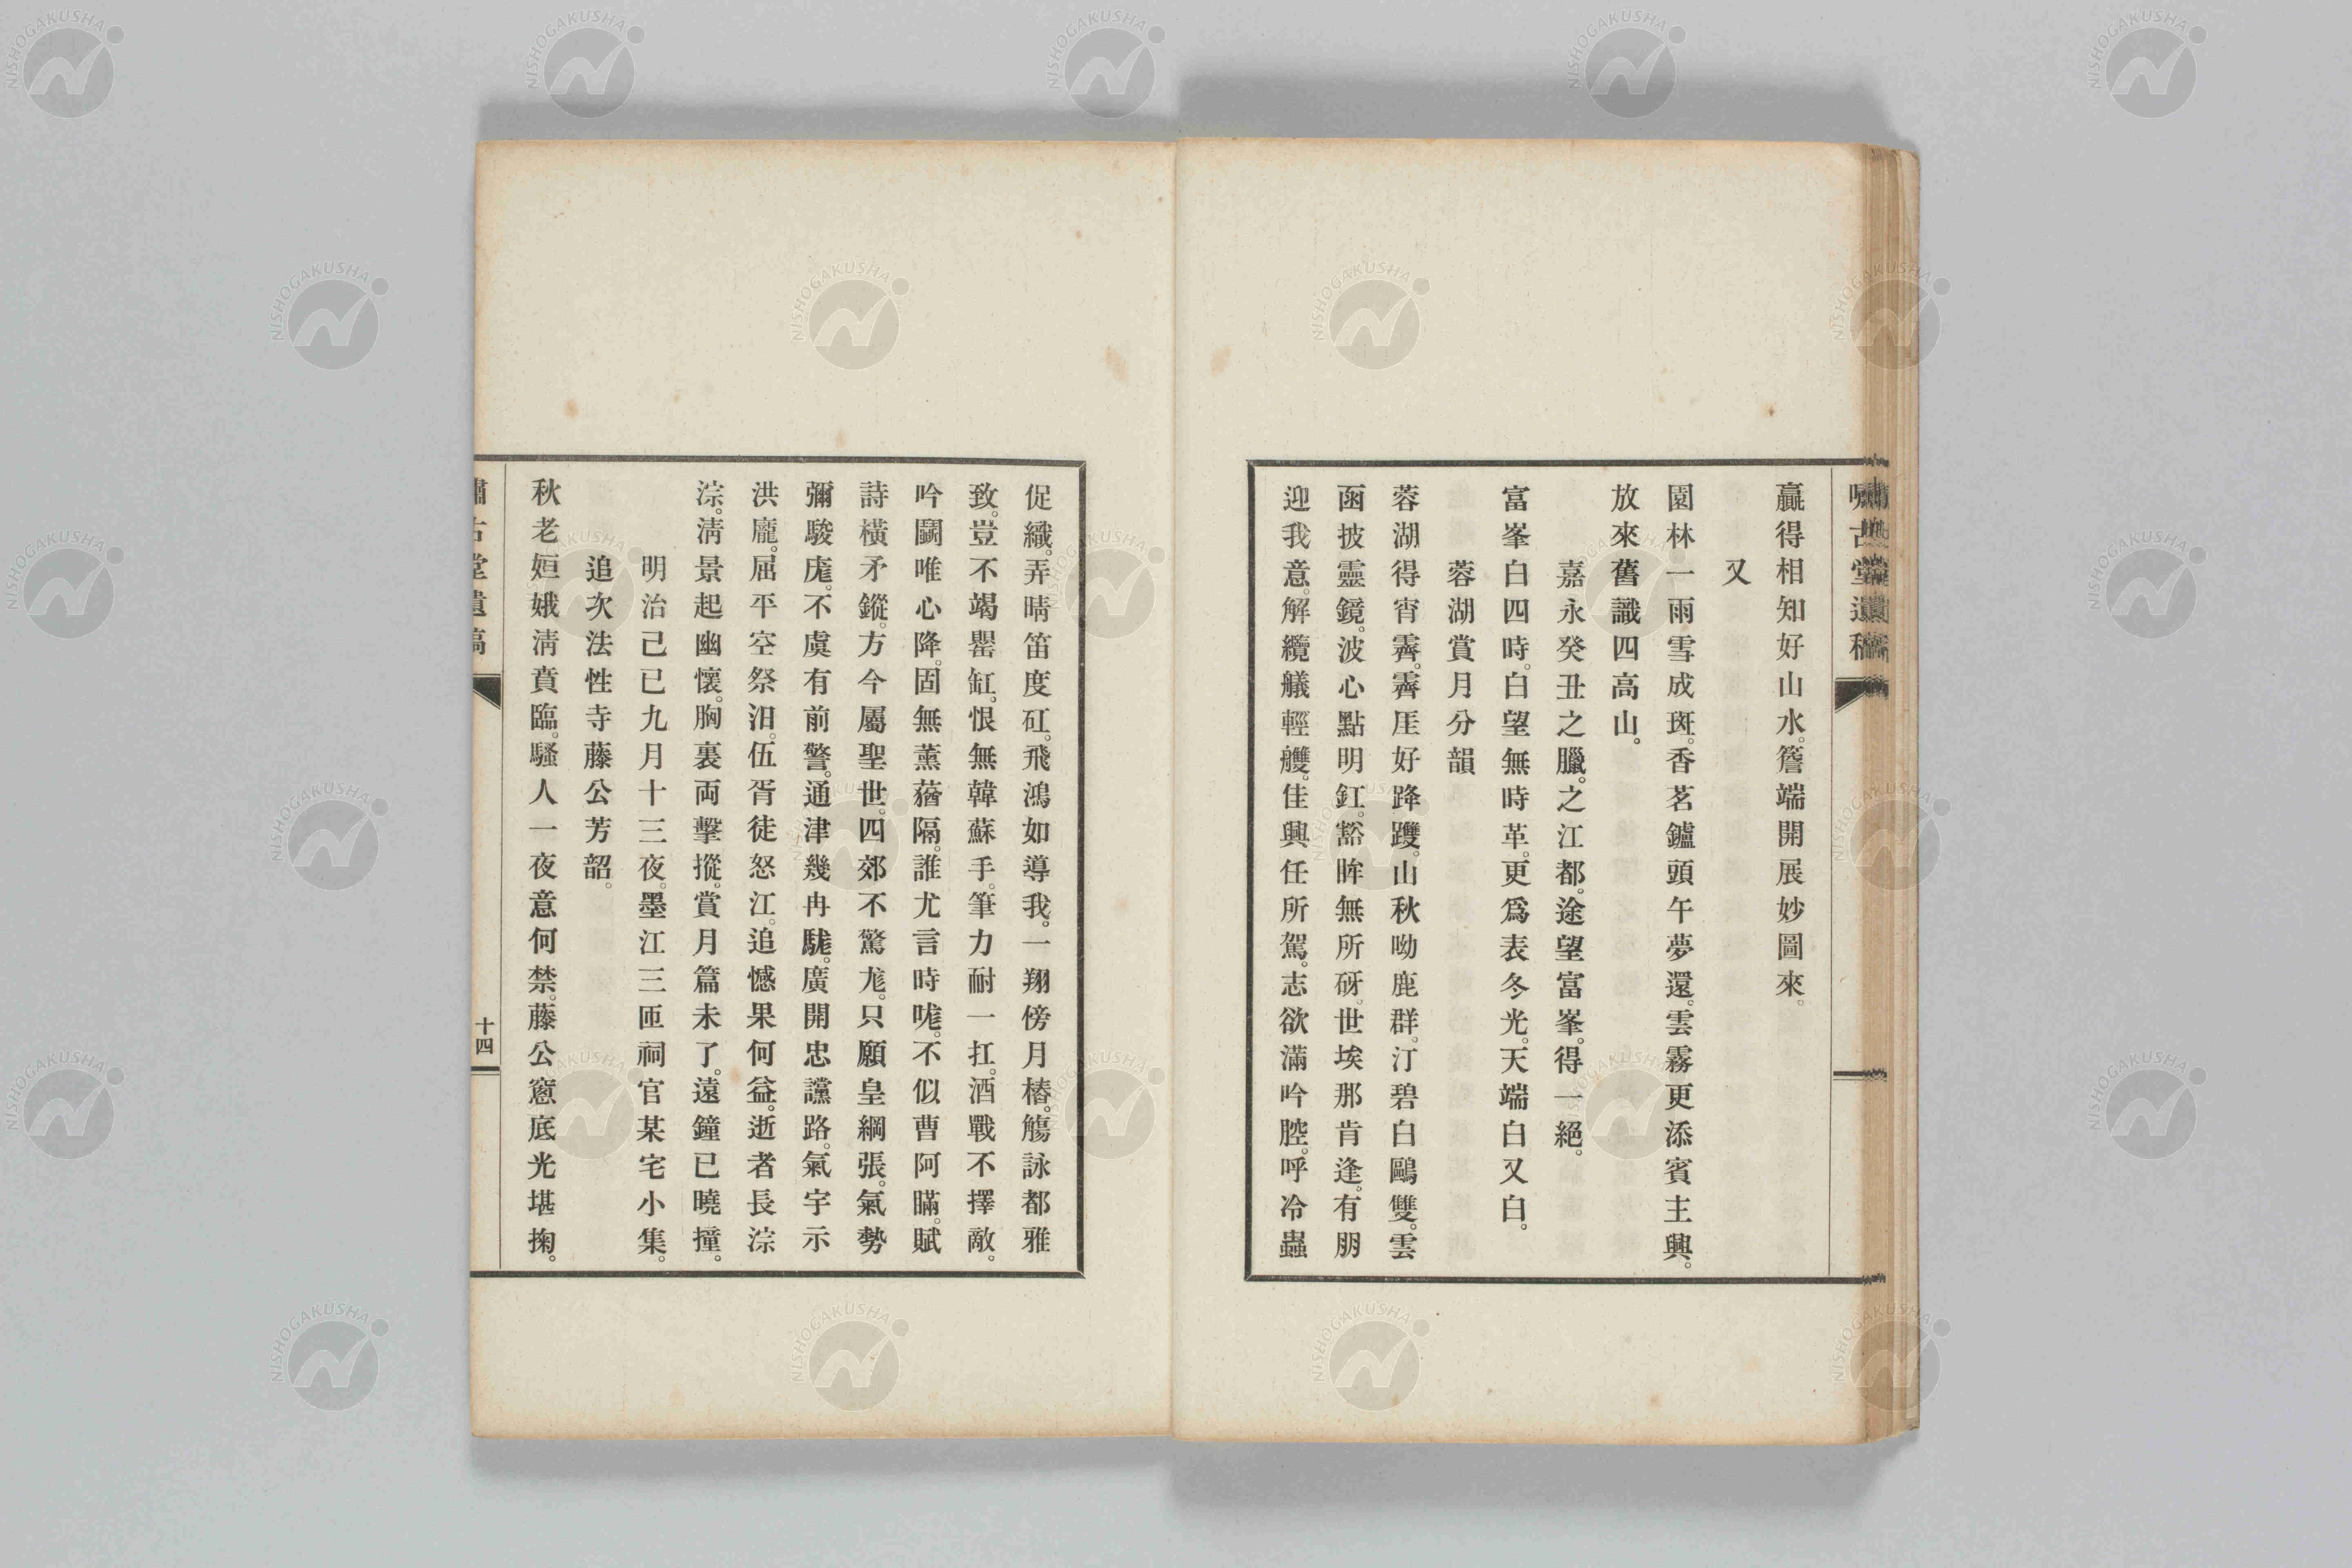 嘯古堂遺稿
贏得相知好山水。簷端開展妙圖來。
又
園林一雨雪成斑。香茗鑪頭午夢還。雲霧更添賓主興。
放來舊識四高山。
嘉永癸丑之臘。之江都。途望富峯。得一絕。
富峯白四時。白望無時革。更爲表冬光。天端白又白。
蓉湖賞月分韻
蓉湖得宵霽。霽厓好跭躞。山秋呦鹿群。汀碧白鷗雙。雲
函披靈鏡。波心點明釭。豁眸無所硏。世埃那肯逢。有朋
迎我意。解纜艤輕艭。佳興任所駕。志欲滿吟腔。呼冷蟲
促織。弄晴笛度矼。飛鴻如導我。一翔傍月樁。觴詠都雅
致。豈不竭罌缸。恨無韓蘇手。筆力耐一扛。酒戰不擇敵。
吟鬭唯心降。固無薰蕕隔。誰尤言時哤。不似曹阿瞞。賦
詩橫矛鏦。方今屬聖世。四郊不驚尨。只願皇綱張。氣勢
彌駿厖。不虞有前警。通津幾冉駹。廣開忠讜路。氣宇示
洪龐。屈平空祭汨。伍胥徒怒江。追憾果何益。逝者長淙
淙。淸景起幽懷。胸裏両擊摐。賞月篇未了。遠鐘已曉撞。
明治己巳九月十三夜。墨江三匝祠官某宅小集。
追次法性寺藤公芳韶。
秋老姮娥淸賁臨。騷人一夜意何禁。藤公窻底光堪掬。
嘯古堂遺稿
十四
NISHOGAKUSHA